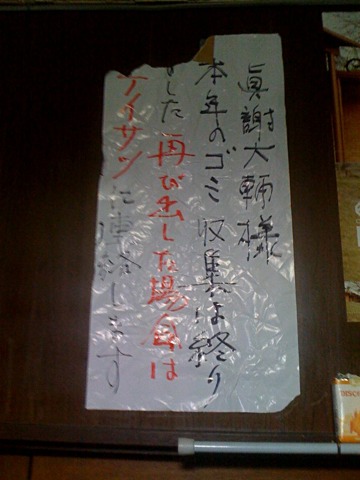 眞謝大輛様
本年のゴミ収集は終り
ました再び出した場合は
ケイサツに連絡します
DISCO